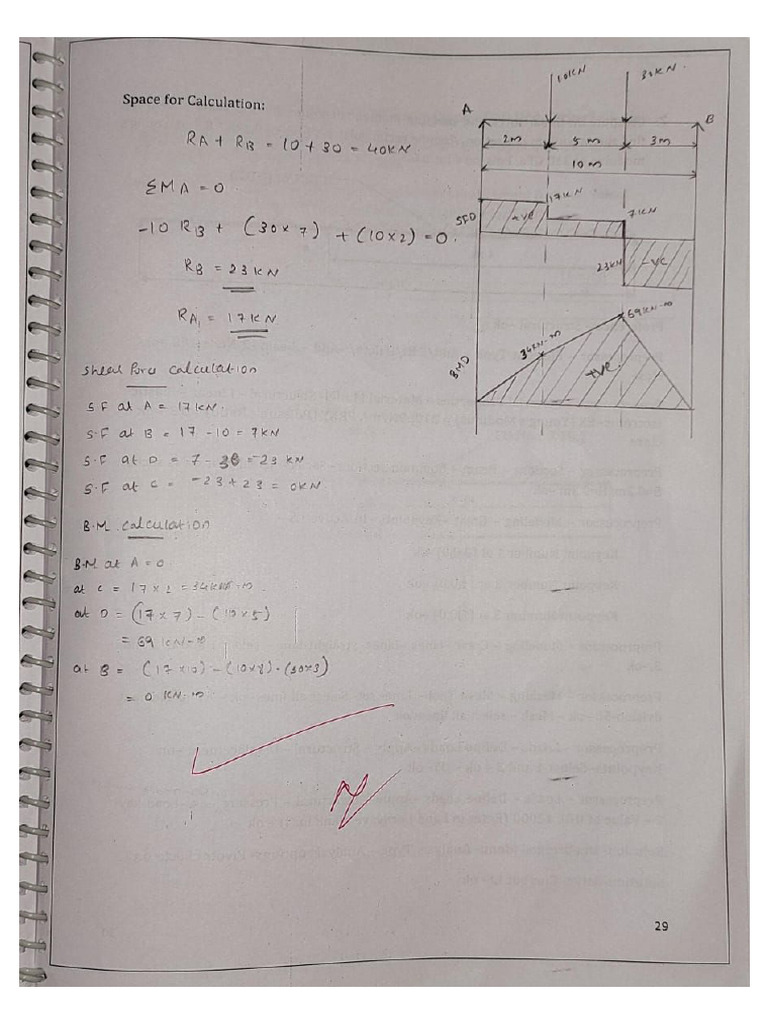 Space for Calculation:
RA + RB = 10 + 30 = 40KN
ΣMA = 0
-10 RB + (30 x 7) + (10 x 2) = 0.
RB = 23 KN
RA = 17 KN
Shear Force calculation
S F at A = 17 KN.
S.F at B = 17 - 10 = 7 KN
S.F at D = 7 - 30 = -23 KN
S.F at C = -23 + 23 = 0KN.
B.M. calculation
B.M at A = 0
at C = 17 x 2 = 34KN-m.
at D = (17 x 7) - (10 x 5)
= 69 KN-m
at B = (17 x 10) - (10 x 8) - (30 x 3)
= 0 KN-m
10KN
30KN.
A
B
2m
5m
3m
10m
SFD
+ve
17KN
7KN
23KN
-ve
BMD
34KN-m
69KN-m
+ve
29